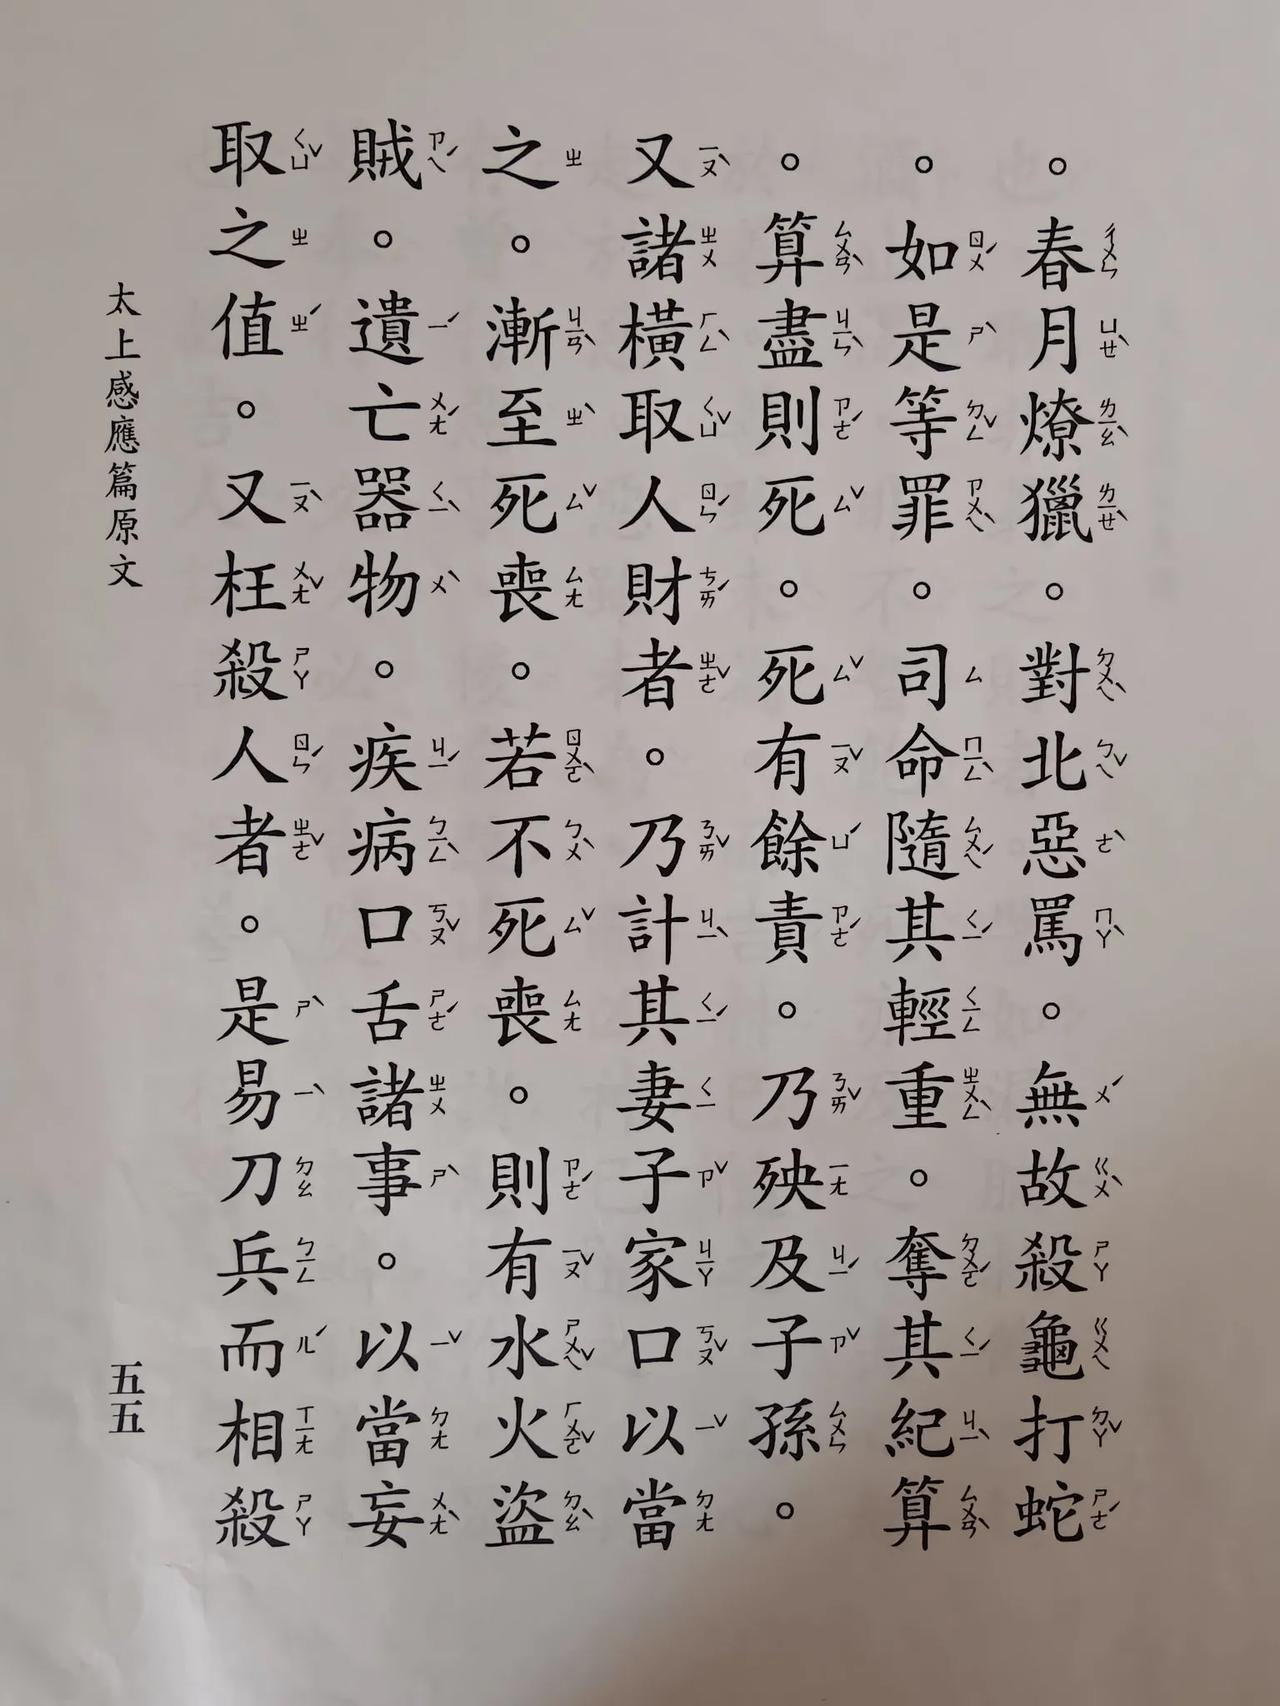 。春月燎獵。對北惡罵。無故殺龜打蛇
。如是等罪。司命隨其輕重。奪其紀算
。算盡則死。死有餘責。乃殃及子孫。
又諸橫取人財者。乃計其妻子家口以當
之。漸至死喪。若不死喪。則有水火盜
賊。遺亡器物。疾病口舌諸事。以當妄
取之值。又枉殺人者。是易刀兵而相殺
太上感應篇原文
五五